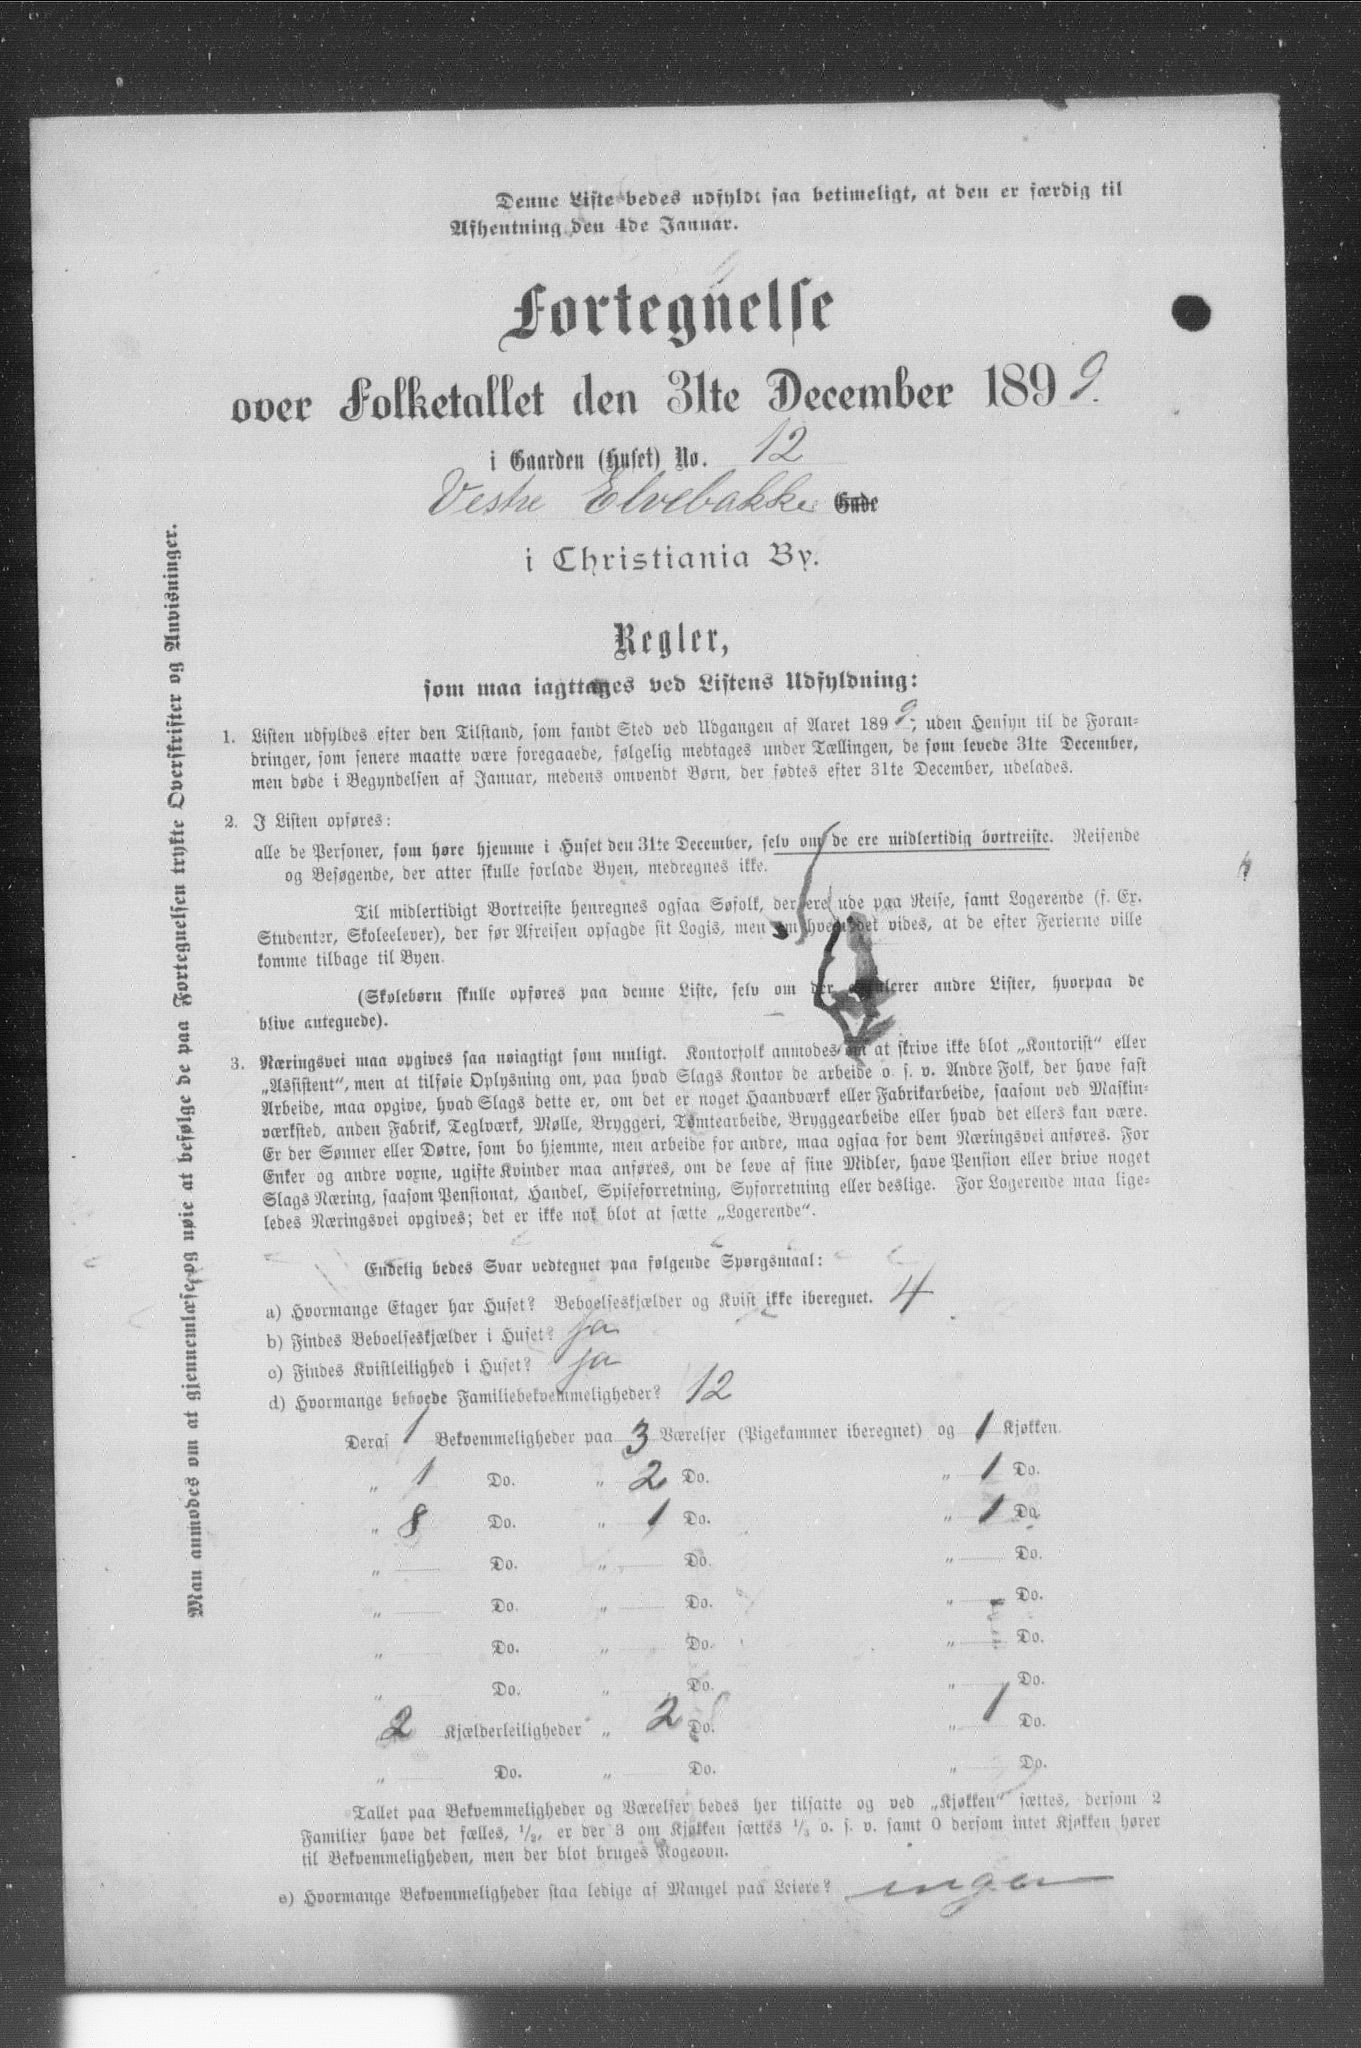 Denne Liste bedes udfyldt saa betimeligt, at den er færdig til
Afhentning den 4de Januar.
Fortegnelse
over Folketallet den 31te December 1899.
i Gaarden (Huset) No. 12
Vestre Elvebakke Gade
i Christiania By.
Regler,
som maa iagttages ved Listens Udfyldning:
1. Listen udfyldes efter den Tilstand, som fandt Sted ved Udgangen af Aaret 1899; uden Hensyn til de Foran-
dringer, som senere maatte være foregaaede, følgelig medtages under Tællingen, de som levede 31te December,
men døde i Begyndelsen af Januar, medens omvendt Børn, der fødtes efter 31te December, udelades.
2. I Listen opføres:
alle de Personer, som høre hjemme i Huset den 31te December, selv om de ere midlertidig bortreiste. Reisende
og Besøgende, der atter skulle forlade Byen, medregnes ikke.
Til midlertidigt Bortreiste henregnes ogsaa Søfolk, der ere ude paa Reise, samt Logerende (f. Ex.
Studenter, Skoleelever), der før Afreisen opsagde sit Logis, men om hvem det vides, at de efter Ferierne ville
komme tilbage til Byen.
(Skolebørn skulle opføres paa denne Liste, selv om der andre Lister, hvorpaa de
blive antegnede).
3. Næringsvei maa opgives saa nøiagtigt som muligt. Kontorfolk anmodes om at skrive ikke blot „Kontorist“ eller
„Assistent“, men at tilføie Oplysning om, paa hvad Slags Kontor de arbeide o. s. v. Andre Folk, der have fast
Arbeide, maa opgive, hvad Slags dette er, om det er noget Haandværk eller Fabrikarbeide, saasom ved Maskin-
værksted, anden Fabrik, Teglværk, Mølle, Bryggeri, Tomtearbeide, Bryggearbeide eller hvad det ellers kan være.
Er der Sønner eller Døtre, som bo hjemme, men arbeide for andre, maa ogsaa for dem Næringsvei anføres. For
Enker og andre voxne, ugifte Kvinder maa anføres, om de leve af sine Midler, have Pension eller drive noget
Slags Næring, saasom Pensionat, Handel, Spiseforretning, Syforretning eller deslige. For Logerende maa lige-
ledes Næringsvei opgives; det er ikke nok blot at sætte „Logerende“.
Endelig bedes Svar vedtegnet paa følgende Spørgsmaal:
a) Hvormange Etager har Huset? Beboelseskjælder og Kvist ikke iberegnet. 4
b) Findes Beboelseskjælder i Huset? ja
c) Findes Kvistleilighed i Huset? ja
d) Hvormange beboede Familiebekvemmeligheder? 12
Deraf 1 Bekvemmeligheder paa 3 Værelser (Pigekammer iberegnet) og 1 Kjøkken.
„ 1 Do. „ 2 Do. „ 1 Do.
„ 8 Do. „ 1 Do. „ 1 Do.
„ Do. „ Do. „ Do.
„ Do. „ Do. „ Do.
„ Do. „ Do. „ Do.
„ Do. „ Do. „ Do.
2 Kjælderleiligheder „ 2 Do. „ 1 Do.
„ Do. „ Do. „ Do.
Tallet paa Bekvemmeligheder og Værelser bedes her tilsatte og ved „Kjøkken“ sættes, dersom 2
Familier have det fælles, 1/2, er der 3 om Kjøkken sættes 1/3 o. s. v. samt 0 dersom intet Kjøkken hører
til Bekvemmeligheden, men der blot bruges Kogeovn.
e) Hvormange Bekvemmeligheder staa ledige af Mangel paa Leiere? ingen
Man anmodes om at gjennemlæse og nøie at befølge de paa Fortegnelsen trykte Overskrifter og Anvisninger.